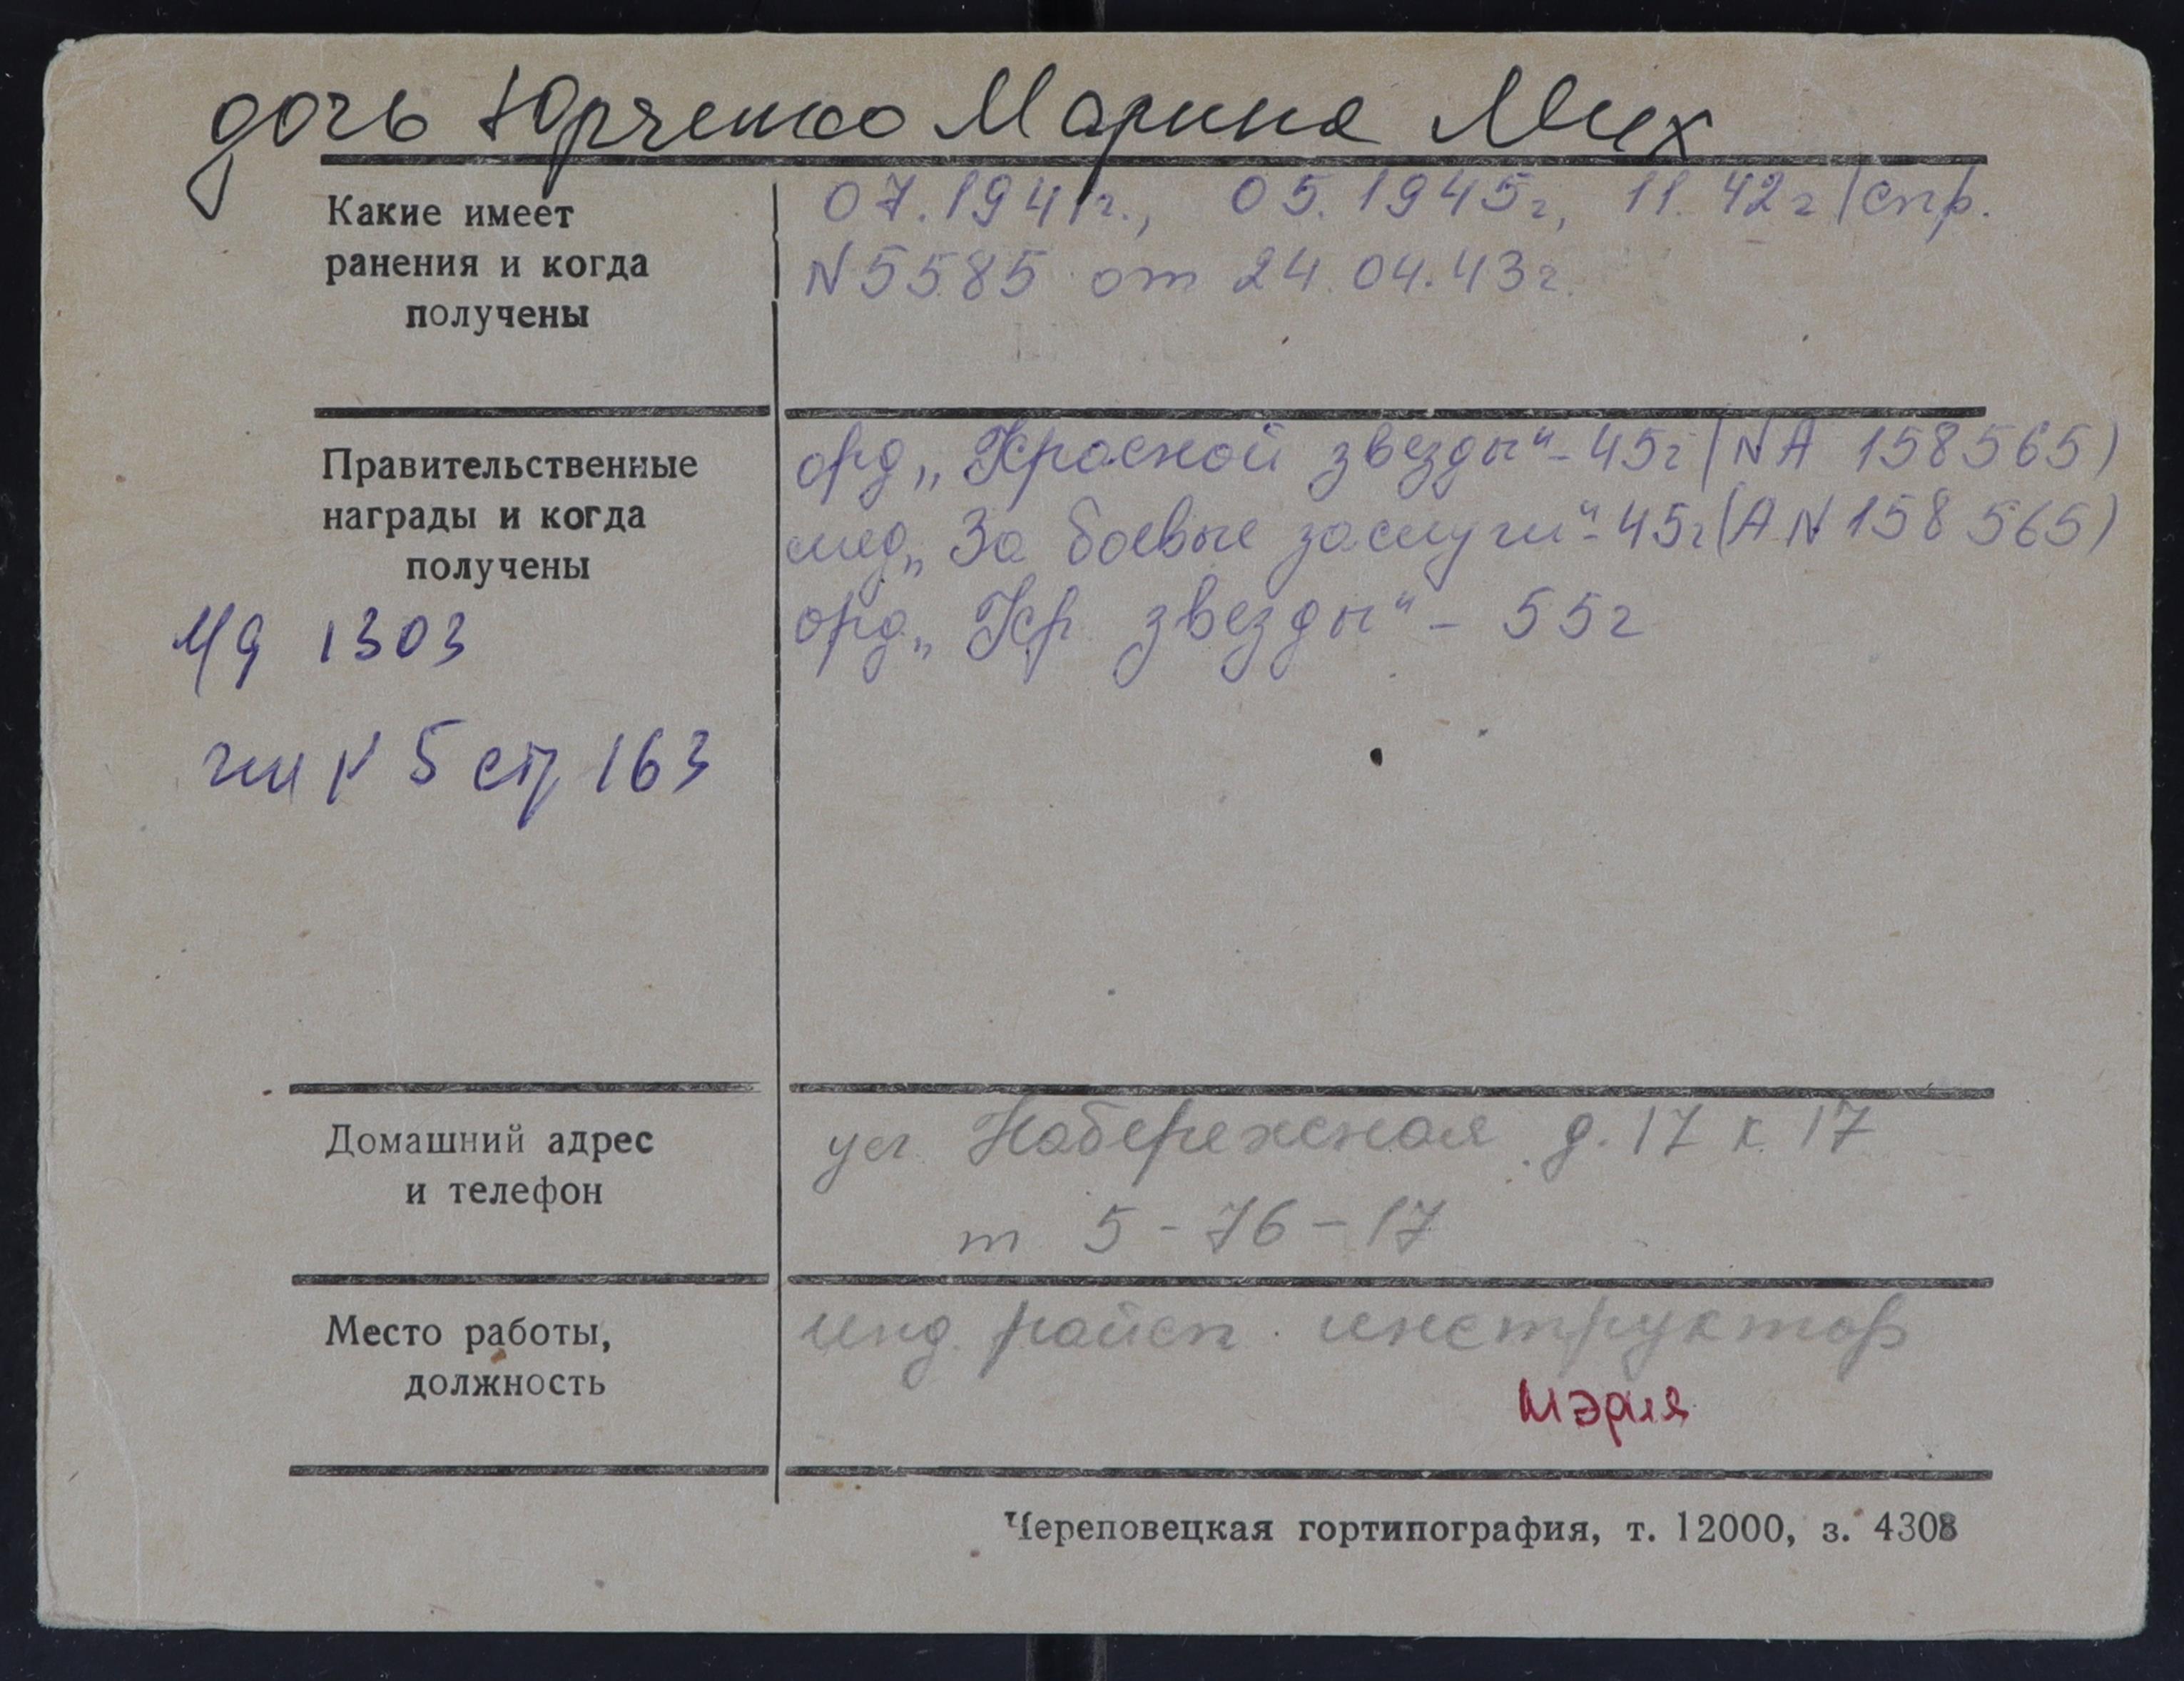 дочь Юрченко Марина Мих
Какие имеет
ранения и когда
получены
07.1941г., 05.1945г, 11.42г (спр.
N5585 от 24.04.43г.
Правительственные
награды и когда
получены
орд „Красной звезды“ - 45г (NА 158565)
мед „За боевые заслуги“ - 45г (А N 158565)
орд „Кр звезды“ - 55г
1303
N 5 стр 163
Домашний адрес
и телефон
ул. Набережная д. 17 к. 17
т 5-76-17
Место работы,
должность
инд. райсп. инструктор
мэрия
Череповецкая гортипография, т. 12000, з. 4308